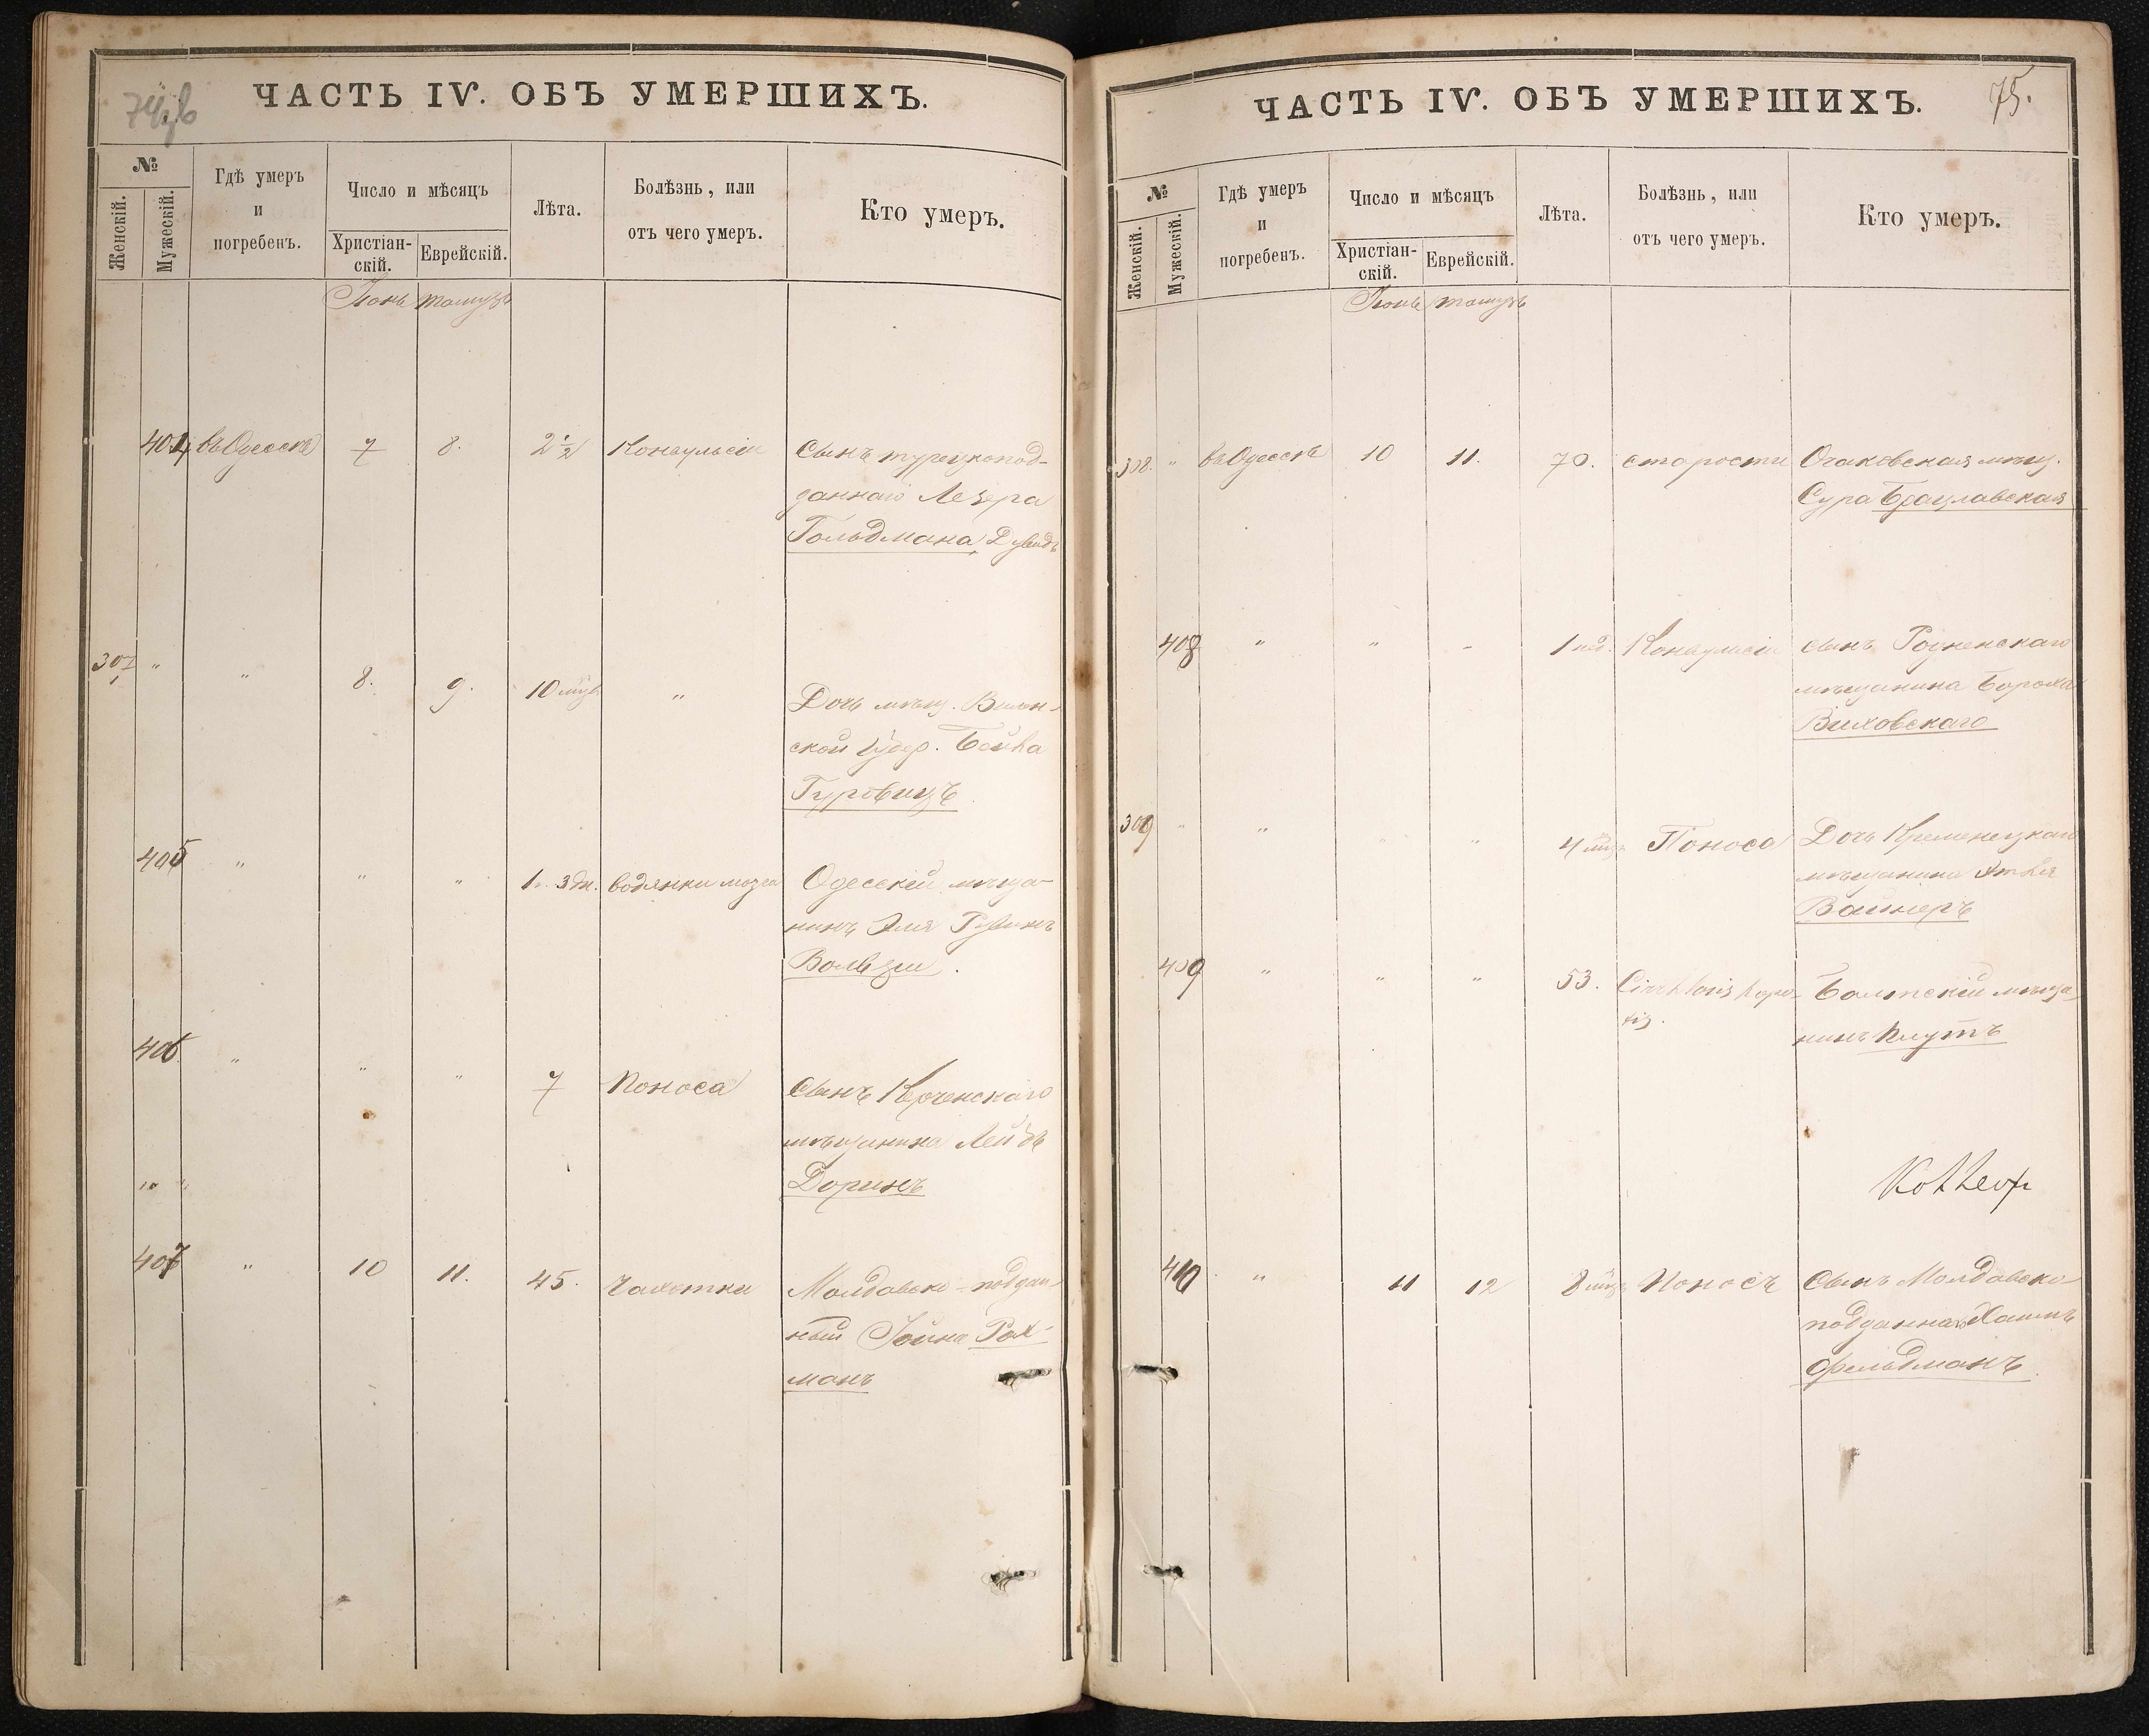 74об
ЧАСТЬ IV. ОБЪ УМЕРШИХЪ.
№
Женскій.
Мужескій.
Гдѣ умеръ
и
погребенъ.
Число и мѣсяцъ
Христіан-
скій.
Еврейскій.
Лѣта.
Болѣзнь, или
отъ чего умеръ.
Кто умеръ.
Іюнь тамузъ
404 въ Одессѣ 7 8. 2 1/2 Конвульсіи Сынъ турецкопод-
даннаго Лезера
Гольдмана Дувидъ
307 " " 8. 9. 10 мѣс. " Дочь мѣщ. Вилен-
ской Губер. Бейла
Гуровицъ
405 " " " 1 г. 3 дн. водянки мозга Одесскій мѣща-
нинъ Эля Рувинъ
406 " " " 7 Поноса Сынъ Керченскаго
мѣщанина Лейбъ
Доринъ
" "
407 " 10 11. 45. Чахотки Молдавско-поддан-
ный Іойна Рох-
манъ
ЧАСТЬ IV. ОБЪ УМЕРШИХЪ.
75.
№
Женскій.
Мужескій.
Гдѣ умеръ
и
погребенъ.
Число и мѣсяцъ
Христіан-
скій.
Еврейскій.
Лѣта.
Болѣзнь, или
отъ чего умеръ.
Кто умеръ.
Іюнь тамузъ
308. " въ Одессѣ 10 11. 70. старости Очаковская мѣщ.
Сура Брацлавская
408 " " " 1 нед. Конвульсіи сынъ Ровенскаго
мѣщанина Бороха
Виховскаго
309 " " " " 4 мѣс. Поноса Дочь Кременецкаго
мѣщанина
Вайнеръ
409 " " " 53. Балтскій мѣща-
нинъ Плутъ
410 " 11 12 8 мѣс. Поносъ Сынъ Молдавско
подданнаго Хаимъ
Фельдманъ